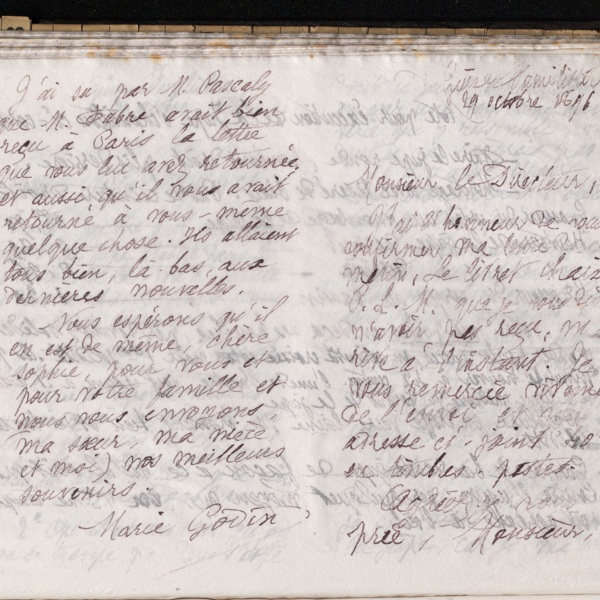 J'ai su par M. Pascaly
que M. Fabre avait bien
reçu à Paris la lettre
que vous lui avez retournée
et aussi qu'il vous avait
retourné à vous-même
quelque chose. Ils allaient
tous bien, là-bas, aux
dernières nouvelles.
Nous espérons qu'il
en est de même, chère
Sophie, pour vous et
pour votre famille et
nous vous envoyons
ma sœur, ma nièce
et moi) nos meilleurs
souvenirs.
Marie Godin
29 octobre
Monsieur le Directeur,
J'ai l'honneur de
confirmer ma lettre
Le livret
que je vous
n'avoir pas reçu, m'a
à l'instant. Je
vous remercie
de l'envoi et vous
adresse ci-joint
en timbres-postes.
Agréez, je vous
prie, Monsieur,